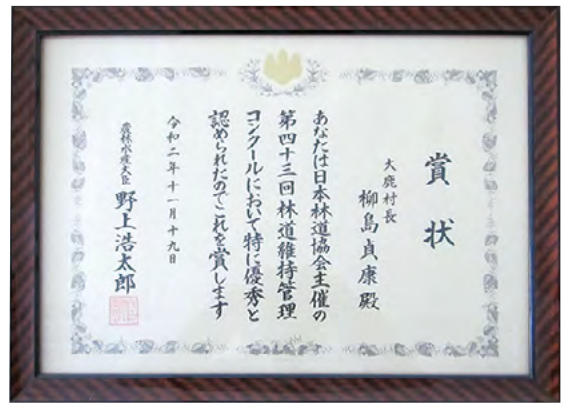 賞状
大鹿村長
柳島貞康殿
あなたは日本林道協会主催の
第四十三回林道維持管理
コンクールにおいて特に優秀と
認められたのでこれを賞します
令和二年十一月十九日
農林水産大臣 野上浩太郎